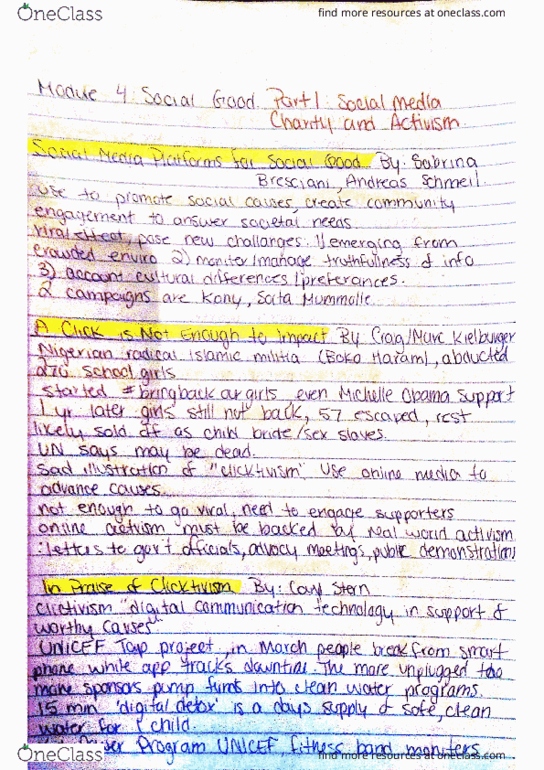 OneClass
find more resources at oneclass.com
Module 4 Social Good. Part 1 Social Media
Charity and Activism
Social Media Platforms for Social Good By: Sabrina
Bresciani, Andreas Schmeil
use to promote social causes, create community
engagement to answer societal needs
viral effect, pose new challanges: 1) emerging from
crowded enviro 2) moniter/manage truthfullness of info
3) account cultural differences/preferances.
2 campaigns are Kony,
A Click is Not Enough to Impact By Craig/Marc Kielburger
Nigerian radical Islamic militia (Boko Haram), abducted
270 school girls
started #bringbackourgirls even Michelle Obama support
1 yr later girls still not back, 57 escaped, rest
likely sold off as child bride/sex slaves.
UN says may be dead.
sad illustration of "clicktivism" Use online media to
advance causes.
not enough to go viral, need to engage supporters
online activism must be backed by real world activism
:letters to gov't officials, advocy meetings, public demonstrations
In Praise of Clicktivism By: Caryl Stern
Clictivism "digital communication technology in support of
worthy causes"
UNICEF Tap project, in March people break from smart
phone while app tracks downtime. The more unplugged the
more sponsors pump funds into clean water programs.
15 min 'digital detox' is a days supply of safe, clean
water for 1 child.
Program UNICEF, fitness band moniters
OneClass
find more resources at oneclass.com